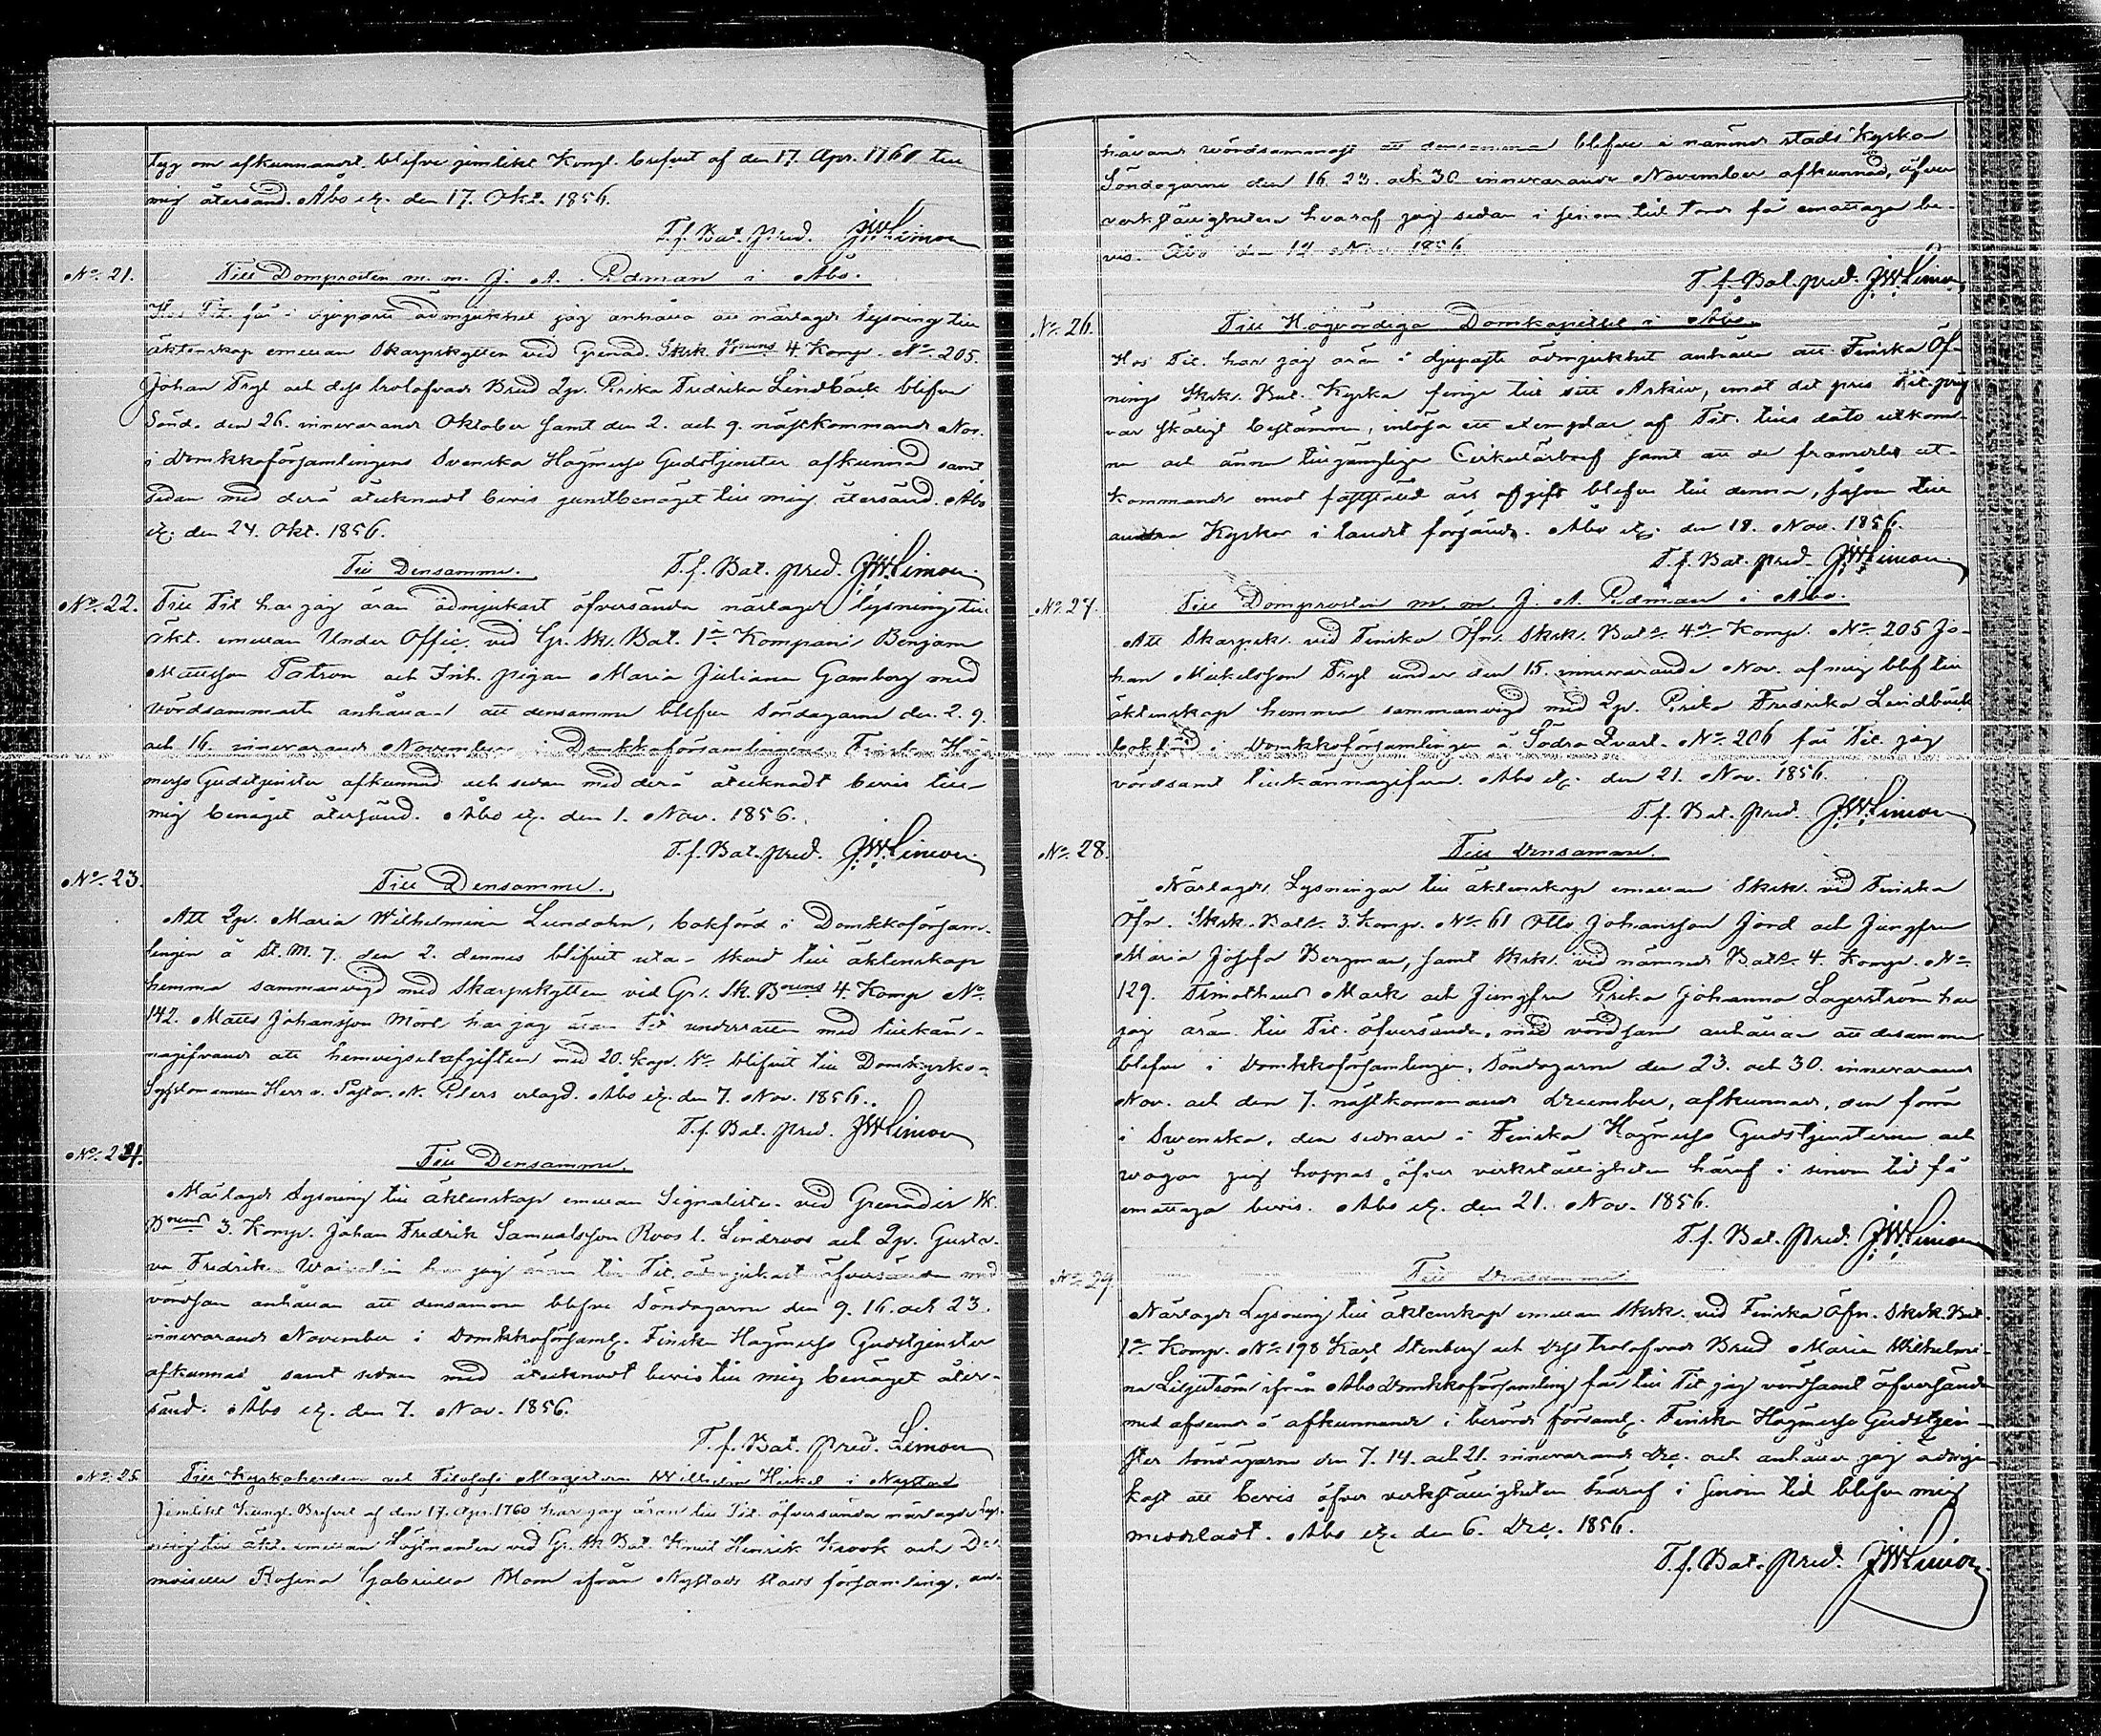 tyg om afkunnandet blifvit jemlikt Kongl. brefvet af den 17. Apr. 1760 till
mig återsänd. Åbo etc. den 17. Okt. 1856.
T.f. Bat. Pred. JWLimon
No. 21.
Till Domprosten m.m. J. A. Edman i Åbo.
Hos Tit. får i djupaste ödmjukhet jag anhålla att närlagde lysning till
äktenskap emellan Skarpskytten vid Grenad. Skrk. Bouns 4. Komp. No. 205.
Johan Trygl och dess trolofvade Brud Qp. Erika Fredrika Lindbäck blifva
Sönd. den 26. innevarande Oktober samt den 2. och 9. nästkommande Nov.
i Domkkoförsamlingens Svenska Högmesso Gudstjenster afkunnad samt
sedan med derå åtecknadt bevis gunstbenäget till mig återsänd. Åbo
etc. den 24. Okt. 1856.
T.f. Bat. pred. JWLimon
Till Densamme.
No. 22.
Till Tit har jag äran ödmjukast öfversända närlagde lysning till
äkt. emellan Under Offic. vid Gr. Sk. Bat. 1a Kompani Benjam
Mattsson Patron och Inh. pigan Maria Juliana Gamberg med
vördsammaste anhållan att densamma blefve Söndagarne den 2. 9.
och 16. innevarande November i Domkkoförsamlingens Finska Hög-
messo Gudstjenster afkunnad och sedan med derå åtecknadt bevis till
mig benäget återsänd. Åbo etc. den 1. Nov. 1856.
T.f. Bat. pred. JWLimon
No. 23.
Till Densamme.
Att Qp. Maria Wilhelmina Lundahn, bokförd i Domkkoförsam-
lingen å St. M. 7. den 2. dennes blifvit uta- Skrud till äktenskap
hemma sammanvigd med Skarpskytten vid Gr. Sk. Bouns 4. Komp No.
142. Matts Johansson Mört har jag äran Tit underrätta med tillkän-
nagifvande att hemvigselafgiften med 20. kop. Sr. blifvit till Domkyrko-
Sysslomannen Herr v. Pastor N. Elers erlagd. Åbo etc. den 7. Nov. 1856.
T.f. Bat. Pred. JWLimon
No. 24.
Till Densamme.
Närlagde Lysning till äktenskap emellan Signalisten vid Grenadier Sk.
Bouns 3. Komp. Johan Fredrik Samuelsson Roos l. Lindroos och Qp. Gusta-
va Fredrika har jag äran till Tit. ödmjukast öfversända med
vördsam anhållan att densamma blefve Söndagarne den 9. 16. och 23.
innevarande November i Domkkoförsaml. Finska Högmesso Gudstjenster
afkunnad samt sedan med åtecknadt bevis till mig benäget åter-
sänd. Åbo etc. den 7. Nov. 1856.
T.f. Bat. Pred. Limon
No. 25
Till Kyrkoherden och Filosofi Magistern Wilhelm Heikel i Nystad
Jemlikt Kungl. Brefvet af den 17. Apr. 1760 har jag äran till Tit. öfversända närlagde Lys-
ning till äkt. emellan Löjtnanten vid Gr. Sk. Bat. Knut Henrik Krook och De-
moiselle Rosina Gabriella Blom ifrån Nystads stads församling, an-
hållande vördsammast att densamma blefve i nämnde stads Kyrka
Söndagarne den 16. 23. och 30 innevarande November afkunnad, öfver
verkställigheten hvaraf jag sedan i sinom tid torde få emottaga be-
vis. Åbo den 14 Nov. 1856
T.f. Bat. pred. JWLimon
No. 26.
Till Högvördiga Domkapitlet i Åbo.
Hos Tit. har jag äran i djupaste ödmjukhet anhålla att Finska Öf-
nings Skrk. Bat. Kyrka finge till sitt Arkiv, emot det pris Tit. pröf-
var skäligt bestämma, inlösa ett exemplar af Tit. tills dato utkom-
na och ännu tillgängliga Cirkulärbref samt att de framdeles ut-
kommande emot fastställd års afgift blefve till denna, såsom till
andra Kyrkor i landet försände. Åbo etc. den 18. Nov. 1856.
T.f. Bat. pred. JWLimon
No. 27.
Till Domprosten m.m. J. A. Edman i Åbo.
Att Skarpsk. vid Finska Öfn. Skrk. Bats 4de Komp. No. 205 Jo-
han Mickelsson Trygl under den 15. innevarande Nov. af mig blef till
äktenskap hemma sammanvigd med Qp. Erika Fredrika Lindbäck
bokförd i Domkkoförsamlingen å Södra Qvart. No. 206 får Tit. jag
vördsamt tillkännagifva. Åbo etc. den 21. Nov. 1856.
T.f. Bat. pred. JWLimon
No. 28.
Till Densamme.
Närlagde Lysningar till äktenskap emellan Skrk. vid Finska
Öfn. Skrk. Bats. 3. Komp. No. 61 Otto Johansson Jord och Jungfru
Maria Josefa Bergman, samt Skrk. vid nämnde Bats. 4. Komp. No.
129. Timotheus Mark och Jungfru Erika Johanna Lagerström har
jag äran till Tit. öfversända, med vördsam anhållan att desamma
blefve i Domkkoförsamlingen, Söndagarne den 23. och 30. innevarande
Nov. och den 7. nästkommande December, afkunnade, den förra
i Svenska, den sednare i Finska Högmesso Gudstjensterna och
vågar jag hoppas öfver verkställigheten häraf i sinom tid få
emottaga bevis. Åbo etc. den 21. Nov. 1856.
T.f. Bat. Pred. JWLimon
No. 29.
Till Densamme
Närlagde Lysning till äktenskap emellan Skrk. vid Finska Öfn. Skrk. Bat.
1a Komp. No. 198 Karl Stenberg och dess trolofvade Brud Maria Wilhelmi-
na Liljeström ifrån Åbo Domkkoförsamling får till Tit jag vördsamt öfversända
med afseende å afkunnande i berörde församl. Finska Högmesso Gudstjen-
ster Söndagarne den 7. 14. och 21. innevarande Dec. och anhåller jag ödmju-
kast att bevis öfver verkställigheten häraf i sinom tid blefve mig
meddeladt. Åbo etc. den 6. Dec. 1856.
T.f. Bat. Pred. JWLimon